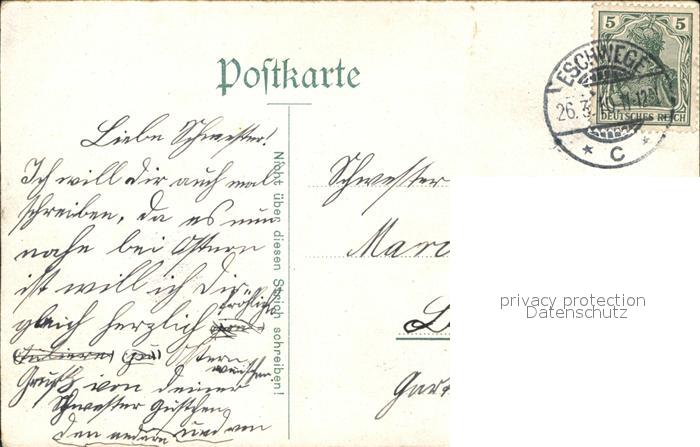 Postkarte
5 5
DEUTSCHES REICH
ESCHWEGE
26.3.10.11-12V
* C *
Liebe Schwester!
Ich will dir auch mal
schreiben, da es nun
nahe bei Ostern
ist will ich dir
gleich herzlich fröhliche
Ostern
wünschen
Gruß von deiner
Schwester Gustchen
den andern und von
Nicht über diesen Strich schreiben!
Schwester
Mar
L
Gar
privacy protection
Datenschutz